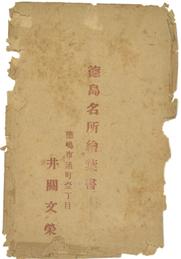 德島名所繪葉書
德島市通町壹丁目
井關文榮